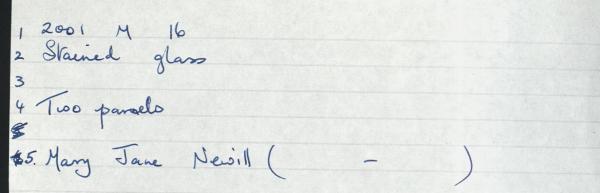 1 2001 M 16
2 Stained glass
3
4 Two panels
5. Mary Jane Newill ( - )